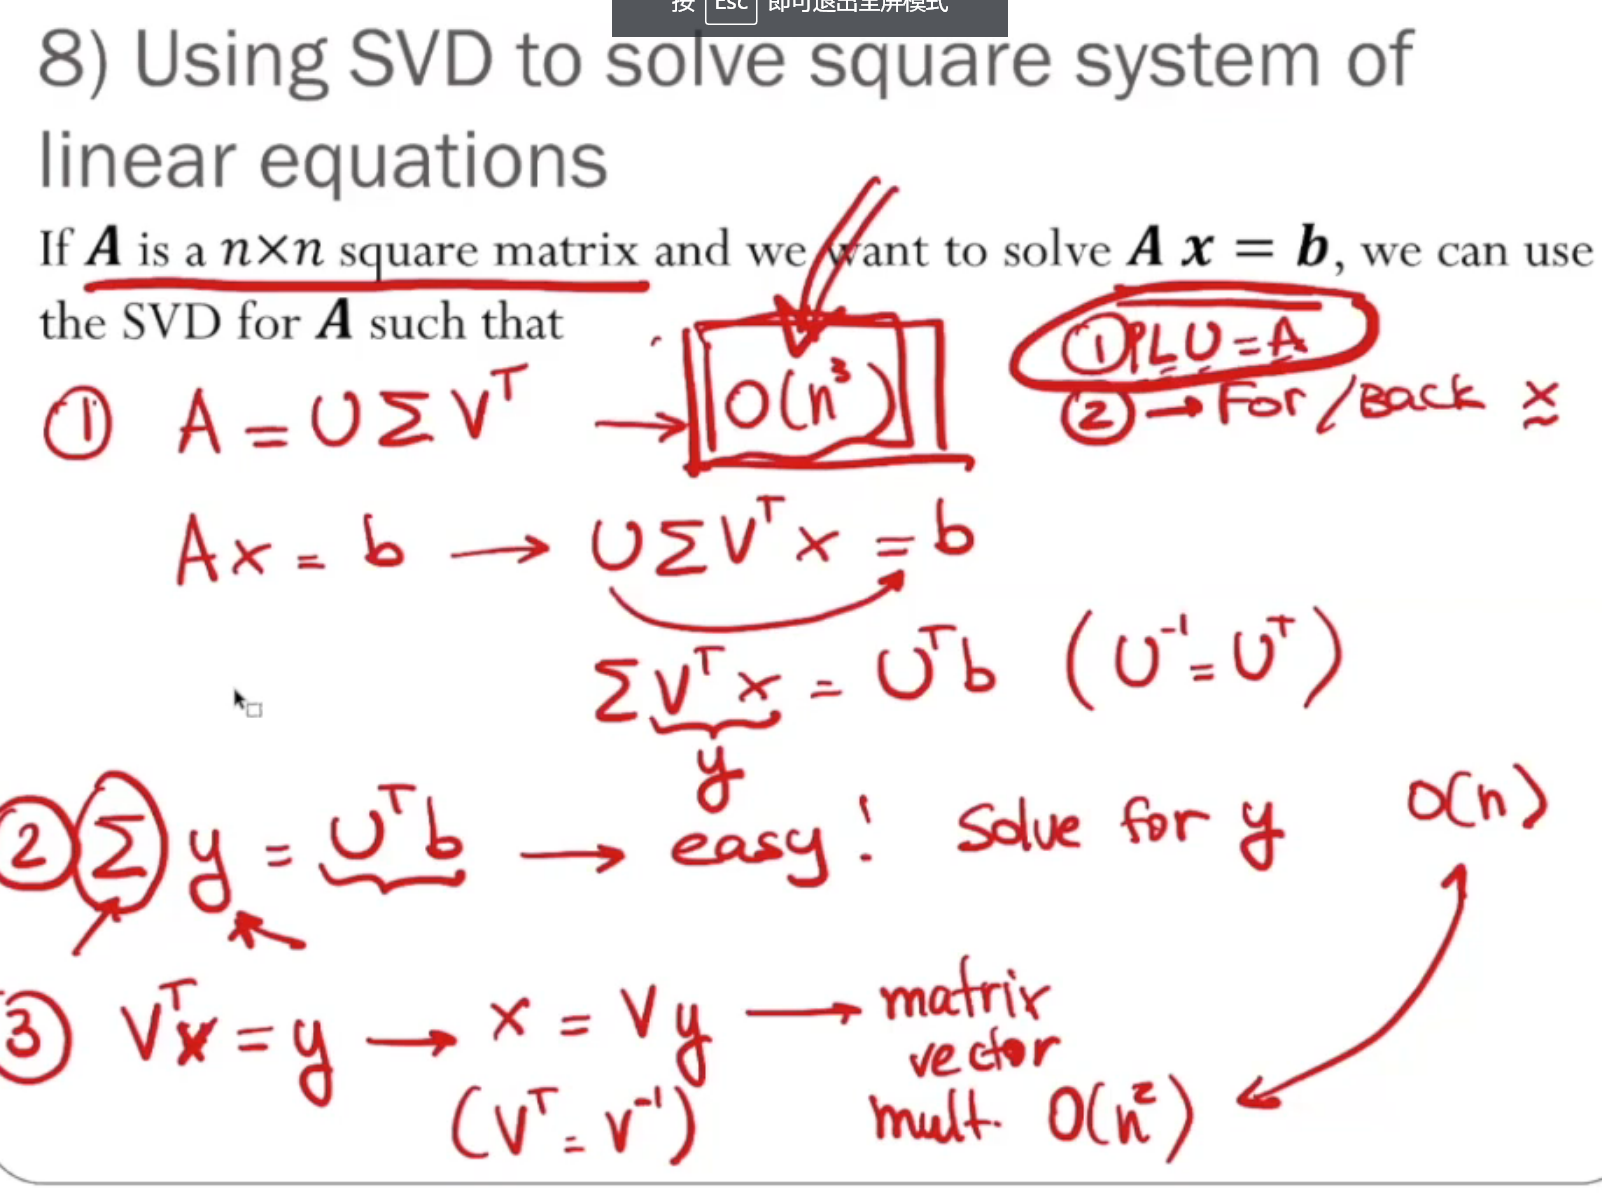 按 Esc 即可退出全屏模式
8) Using SVD to solve square system of
linear equations
If A is a n×n square matrix and we want to solve A x = b, we can use
the SVD for A such that
① PLU = A
① A = U Σ Vᵀ → O(n³)
② → For / Back x
Ax = b → U Σ Vᵀ x = b
Σ Vᵀ x = Uᵀ b (U⁻¹ = Uᵀ)
y
② Σ y = Uᵀ b → easy! Solve for y O(n)
③ Vᵀx = y → x = V y → matrix
vector
(Vᵀ = V⁻¹) mult. O(n²)